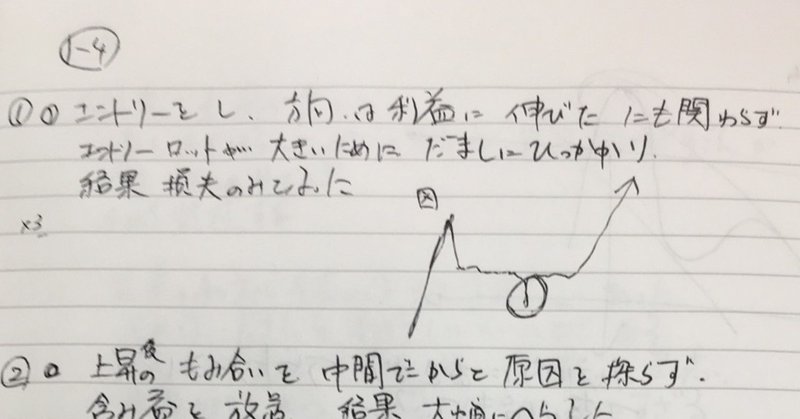 1-4
① ○ エントリーをし、方向は利益に伸びたにも関わらず、
エントリーロットが大きいためにだましにひっかかり、
結果 損失のみでした
×3
図
①
② ○ 上昇後のもみ合いを中間だからと原因を探らず、
含み益を放置 結果